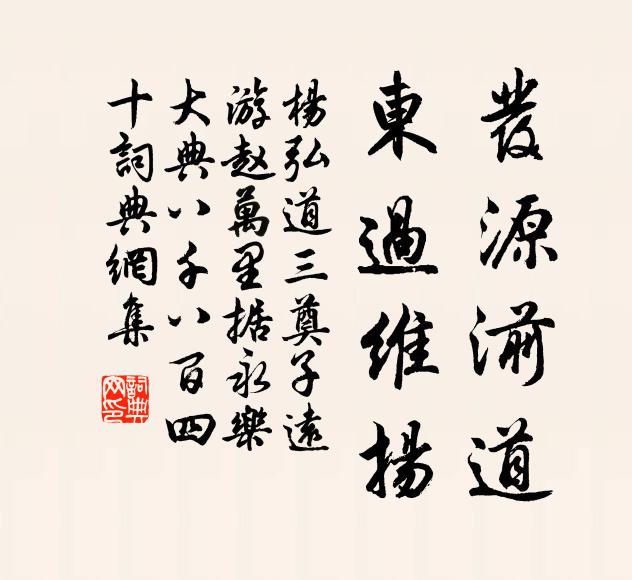 發源湔道
東過維揚
楊弘道三奠子遠
游趙萬里据永樂
大典八千八百四
十詞典網集
詞典网印